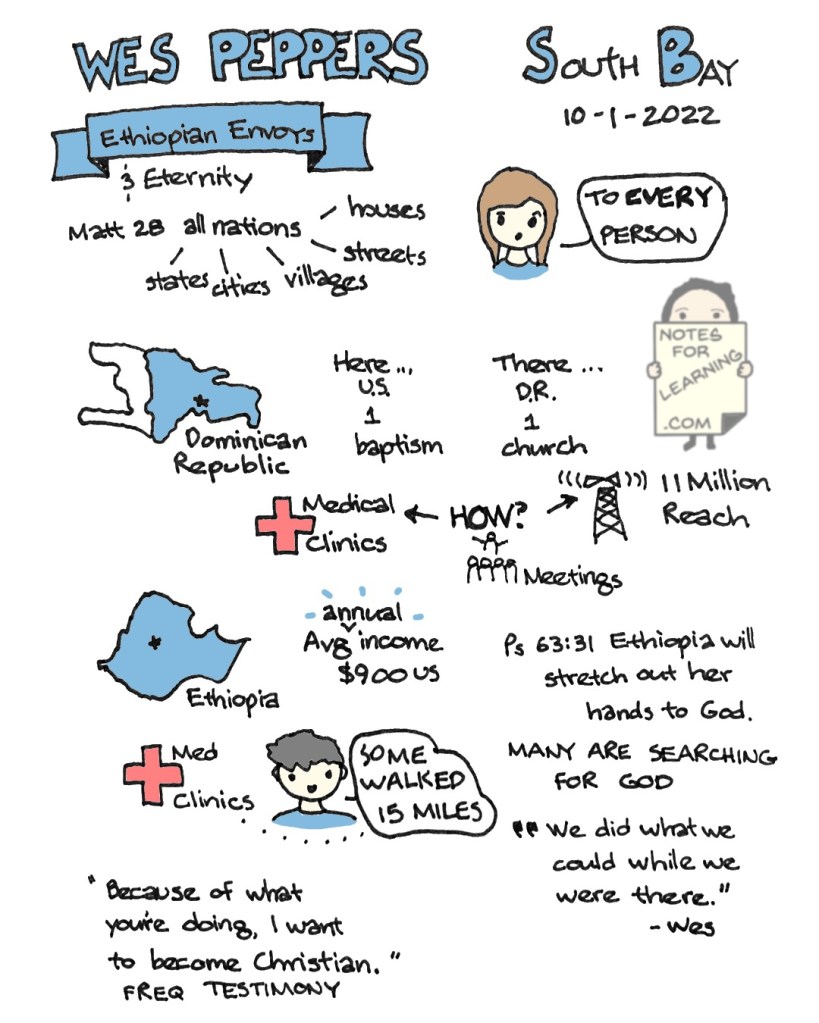 WES PEPPERS
SOUTH BAY
10-1-2022
Ethiopian Envoys
& Eternity
Matt 28 all nations
houses
streets
states
cities
villages
TO EVERY
PERSON
NOTES
FOR
LEARNING
.COM
Dominican
Republic
Here...
U.S.
1
baptism
There...
D.R.
1
church
Medical
Clinics
HOW?
11 Million
Reach
Meetings
Ethiopia
annual
Avg income
$900 US
Ps 63:31 Ethiopia will
stretch out her
hands to God.
Med
Clinics
SOME
WALKED
15 MILES
MANY ARE SEARCHING
FOR GOD
"We did what we
could while we
were there."
- Wes
"Because of what
you're doing, I want
to become Christian."
FREQ TESTIMONY